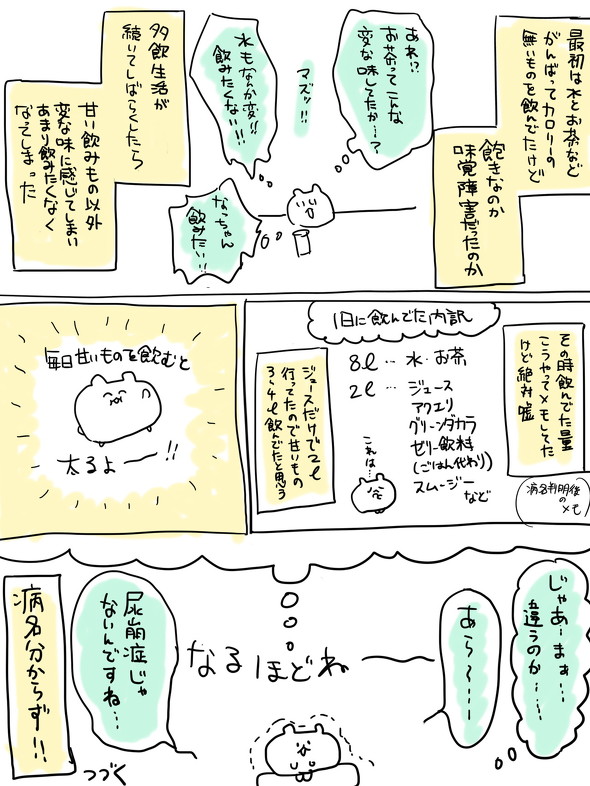 最初は水とお茶など
がんばってカロリーの
無いものを飲んでたけど
飽きなのか
味覚障害だったのか
あれ!?
お茶ってこんな
変な味してたか…?
マズッ!!
水もなんか変!!
飲みたくない!!
なっちゃん
飲みたい!!
多飲生活が
続いてしばらくしたら
甘い飲みもの以外
変な味に感じてしまい
あまり飲みたくなく
なってしまった
その時飲んでた量
こうやってメモしてた
けど絶対嘘
病名判明後
のメモ
1日に飲んでた内訳
8ℓ…水・お茶
2ℓ…ジュース
アクエリ
グリーンダカラ
ゼリー飲料
(ごはん代わり)
スムージー
など
これは…
ジュースだけで2ℓ
行ってたので甘いもの
3、4ℓ飲んでたと思う
毎日甘いものを飲むと
太るよー!!
じゃあーまぁ…
違うのか……
あら〜…
なるほどね
尿崩症じゃ
ないんですね…
病名分からず!!
つづく